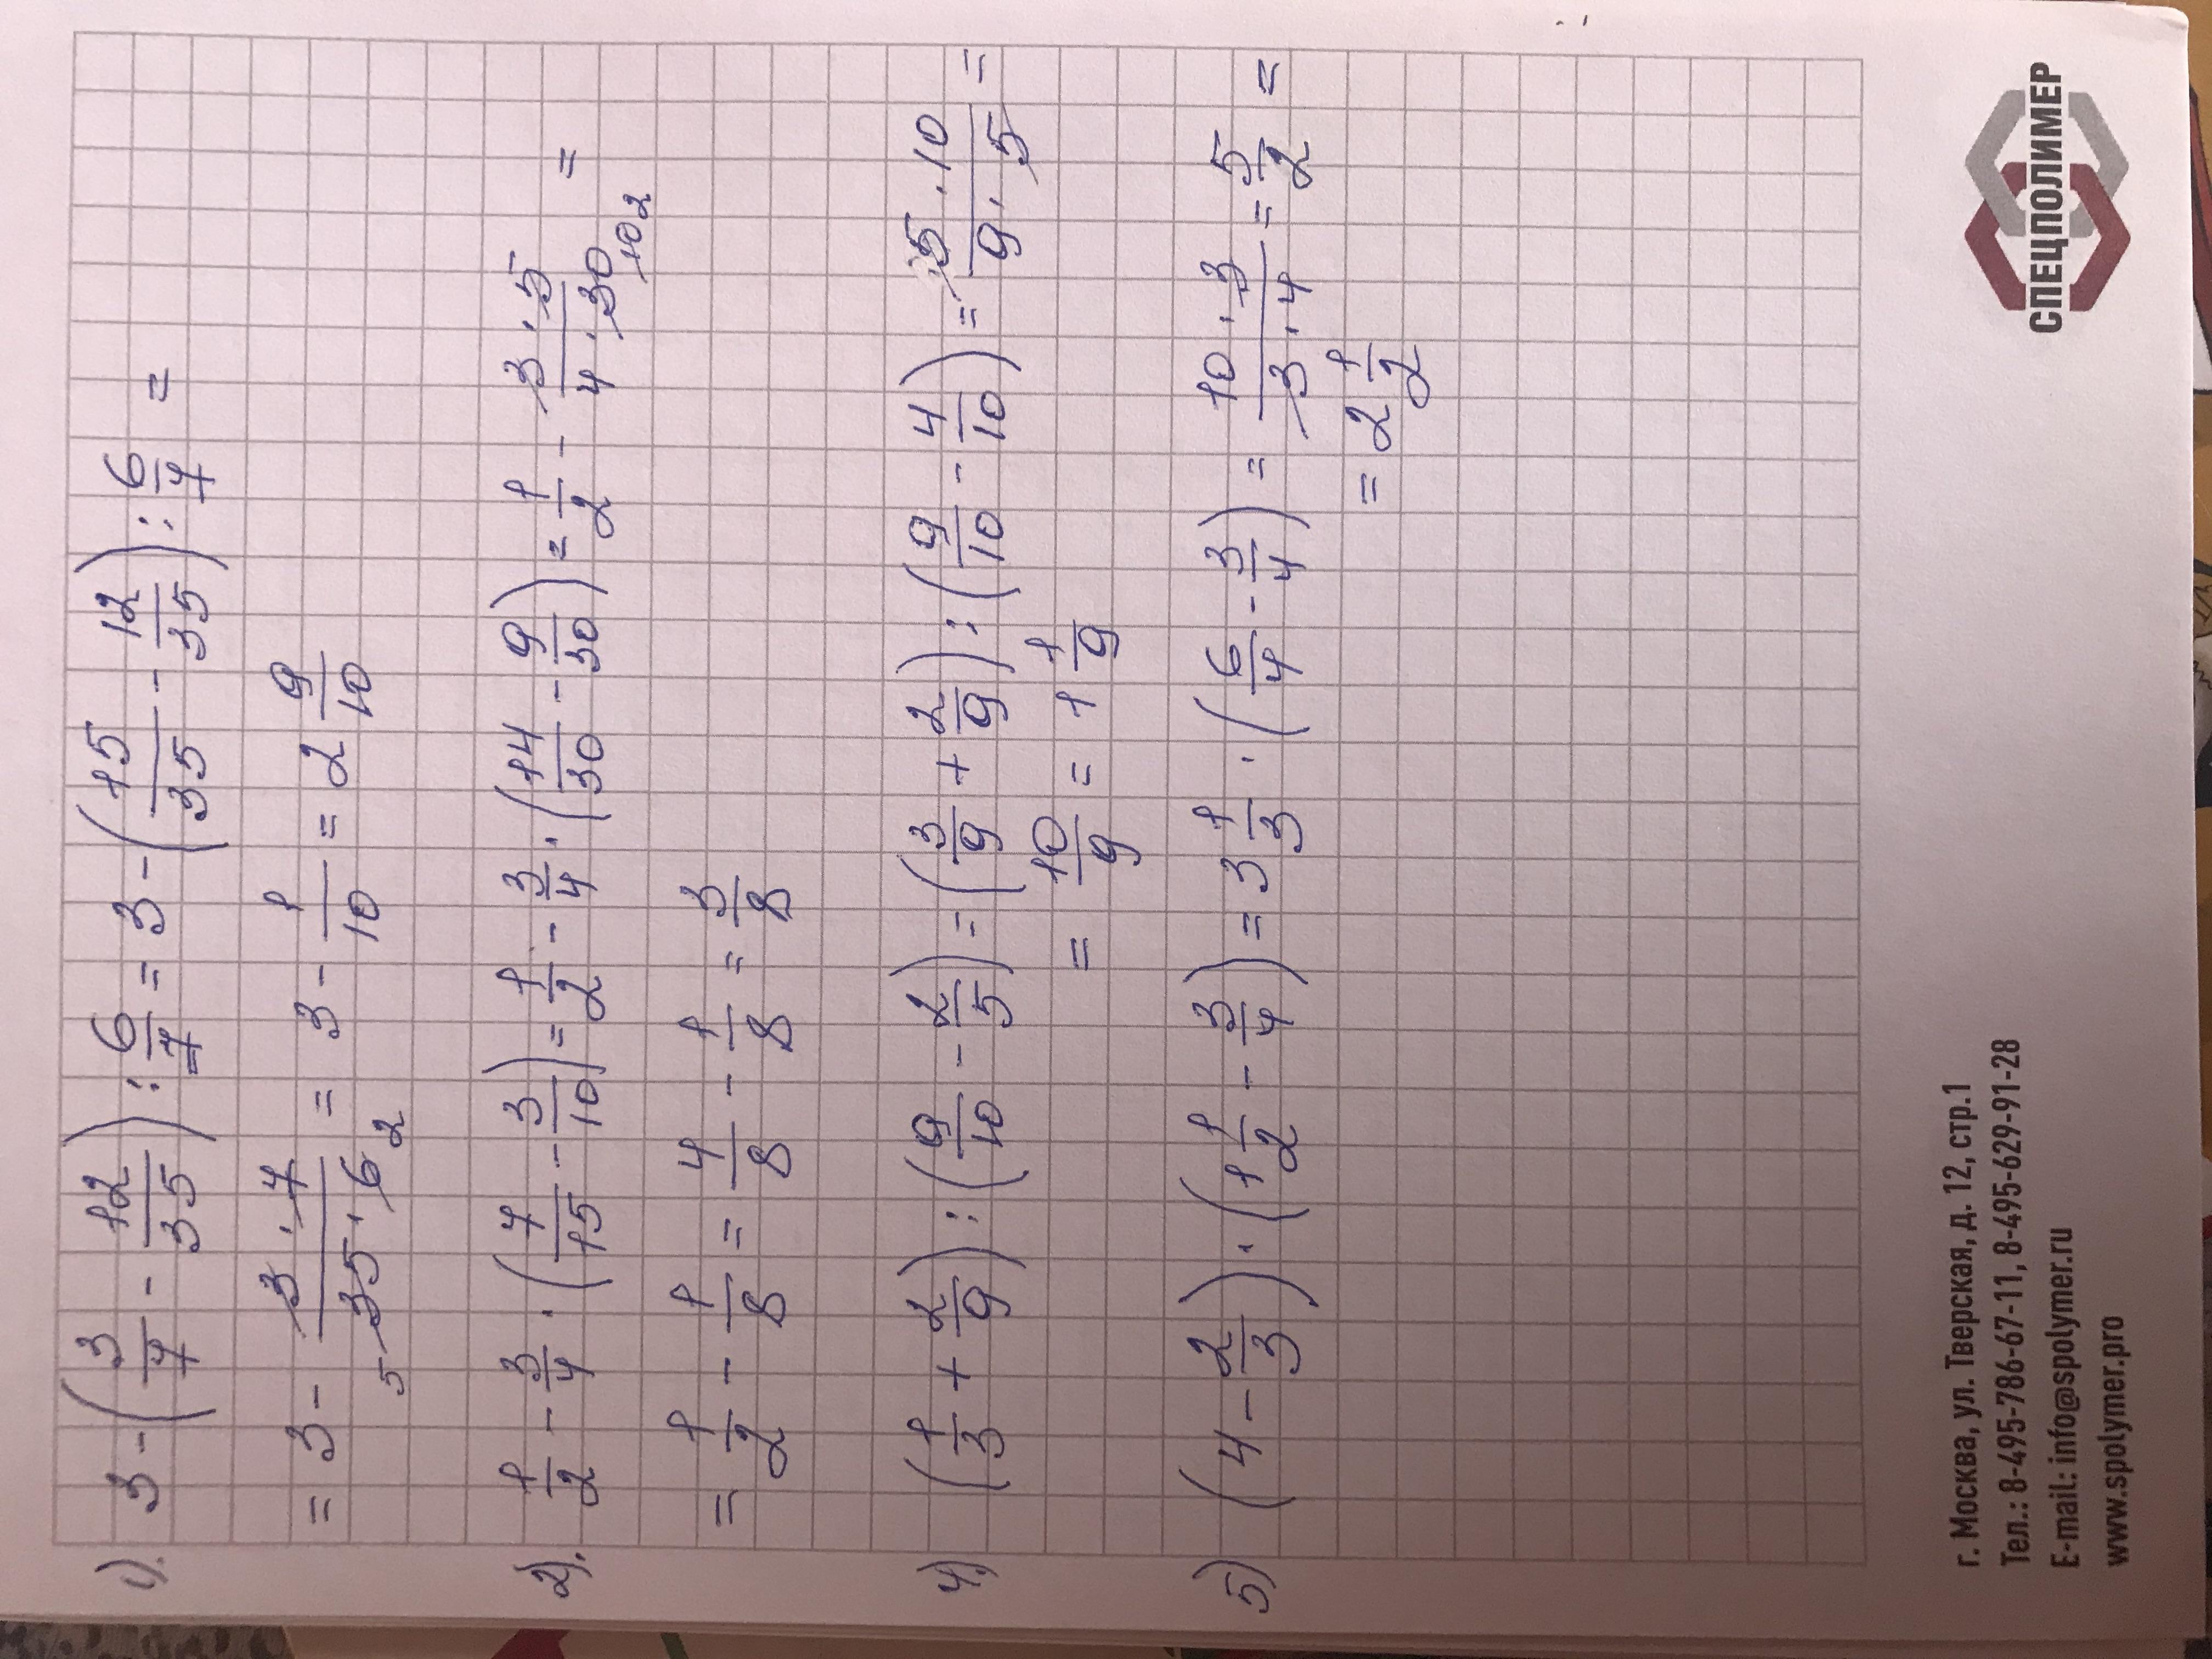 1). 3 - (3/7 - 12/35) : 6/7 = 3 - (15/35 - 12/35) : 6/7 =
= 3 - 3 · 7 / 35 · 6 = 3 - 1/10 = 2 9/10
5 2
2). 1/2 - 3/4 · (7/15 - 3/10) = 1/2 - 3/4 · (14/30 - 9/30) = 1/2 - 3 · 5 / 4 · 30 =
10 2
= 1/2 - 1/8 = 4/8 - 1/8 = 3/8
4) (1/3 + 2/9) : (9/10 - 2/5) = (3/9 + 2/9) : (9/10 - 4/10) = 5 · 10 / 9 · 5 =
= 10/9 = 1 1/9
5) (4 - 2/3) · (1 1/2 - 3/4) = 3 1/3 · (6/4 - 3/4) = 10 · 3 / 3 · 4 = 5/2 =
= 2 1/2
г. Москва, ул. Тверская, д. 12, стр.1
Тел.: 8-495-786-67-11, 8-495-629-91-28
E-mail: info@spolymer.ru
www.spolymer.pro
СПЕЦПОЛИМЕР